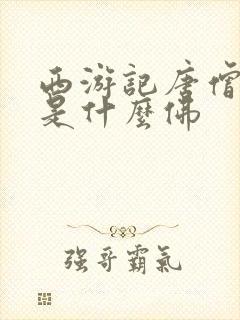 西游記唐僧
是什麽佛
强哥霸氣